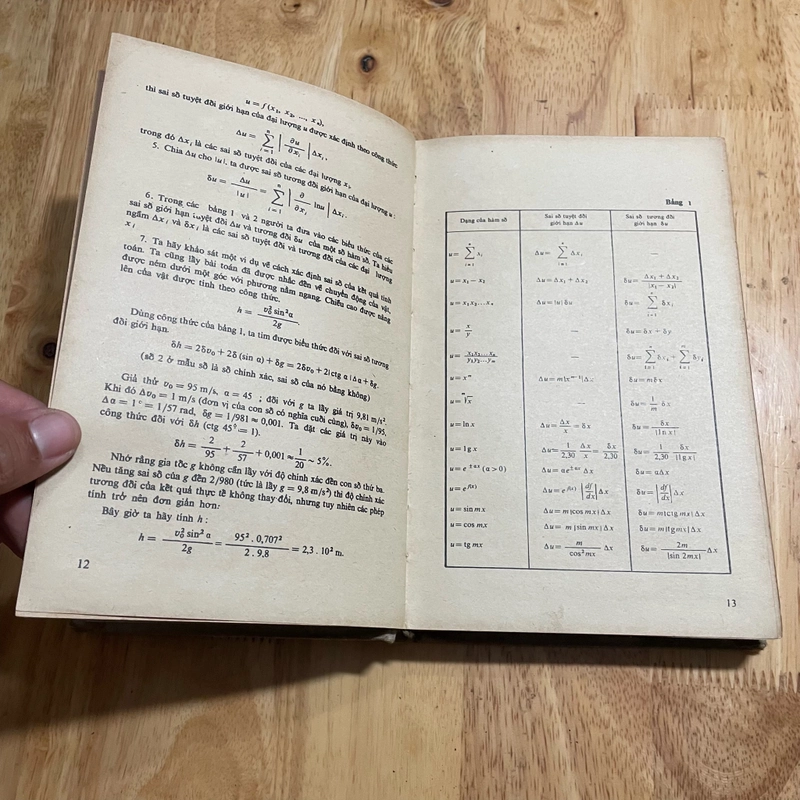 u = f(x₁, x₂, ..., xₙ),
thì sai số tuyệt đối giới hạn của đại lượng u được xác định theo công thức
Δu = ∑ⁿᵢ₌₁ |∂u/∂xᵢ| Δxᵢ,
trong đó Δxᵢ là các sai số tuyệt đối của các đại lượng xᵢ
5. Chia Δu cho |u|, ta được sai số tương đối giới hạn của đại lượng u :
δu = Δu/|u| = ∑ⁿᵢ₌₁ |∂/∂xᵢ lnu| Δxᵢ.
6. Trong các bảng 1 và 2 người ta đưa vào các biểu thức của các
sai số giới hạn tuyệt đối Δu và tương đối δu của một số hàm số. Ta hiểu
ngầm Δxᵢ và δxᵢ là các sai số tuyệt đối và tương đối của các đại lượng
xᵢ
7. Ta hãy khảo sát một ví dụ về cách xác định sai số của kết quả tính
toán. Ta cũng lấy bài toán đã được nhắc đến về chuyển động của vật,
được ném dưới một góc với phương nằm ngang. Chiều cao được nâng
lên của vật được tính theo công thức.
h = v₀² sin² α / 2g
Dùng công thức của bảng 1, ta tìm được biểu thức đối với sai số tương
đối giới hạn.
δh = 2δv₀ + 2δ (sin α) + δg = 2δv₀ + 2|ctg α|Δα + δg.
(số 2 ở mẫu số là số chính xác, sai số của nó bằng không)
Giả thử v₀ = 95 m/s, α = 45 ; đối với g ta lấy giá trị 9,81 m/s².
Khi đó Δv₀ = 1 m/s (đơn vị của con số có nghĩa cuối cùng), δv₀ = 1/95,
Δα = 1° = 1/57 rad, δg = 1/981 ≈ 0,001. Ta đặt các giá trị này vào
công thức đối với δh (ctg 45° = 1).
δh = 2/95 + 2/57 + 0,001 ≈ 1/20 ~ 5%.
Nhớ rằng gia tốc g không cần lấy với độ chính xác đến con số thứ ba.
Nếu tăng sai số của g đến 2/980 (tức là lấy g = 9,8 m/s²) thì độ chính xác
tương đối của kết quả thực tế không thay đổi, nhưng tuy nhiên các phép
tính trở nên đơn giản hơn:
Bây giờ ta hãy tính h :
h = v₀² sin² α / 2g = 95² . 0,707² / 2 . 9,8 = 2,3 . 10² m.
12
Bảng 1
Dạng của hàm số | Sai số tuyệt đối giới hạn Δu | Sai số tương đối giới hạn δu
u = ∑ⁿᵢ₌₁ xᵢ | Δu = ∑ⁿᵢ₌₁ Δxᵢ | —
u = x₁ − x₂ | Δu = Δx₁ + Δx₂ | δu = (Δx₁ + Δx₂)/|x₁ − x₂|
u = x₁x₂...xₙ | Δu = |u|δu | δu = ∑ⁿᵢ₌₁ δxᵢ
u = x/y | — | δu = δx + δy
u = x₁x₂...xₙ / y₁y₂...yₘ | — | δu = ∑ δxₖ + ∑ δyₖ
u = xᵐ | Δu = m|xᵐ⁻¹|Δx | δu = mδx
u = ᵐ√x | — | δu = 1/m δx
u = ln x | Δu = Δx/x = δx | δu = δx/|ln x|
u = lg x | Δu = 1/2,30 Δx/x = δx/2,30 | δu = 1/2,30 δx/|lg x|
u = e^±αx (α > 0) | Δu = αe^±αx Δx | δu = αΔx
u = e^f(x) | Δu = e^f(x) |df/dx| Δx | δu = |df/dx| Δx
u = sin mx | Δu = m|cos mx|Δx | δu = m|ctg mx|Δx
u = cos mx | Δu = m|sin mx|Δx | δu = m|tg mx|Δx
u = tg mx | Δu = m/cos² mx Δx | δu = 2m/|sin 2mx| Δx
13